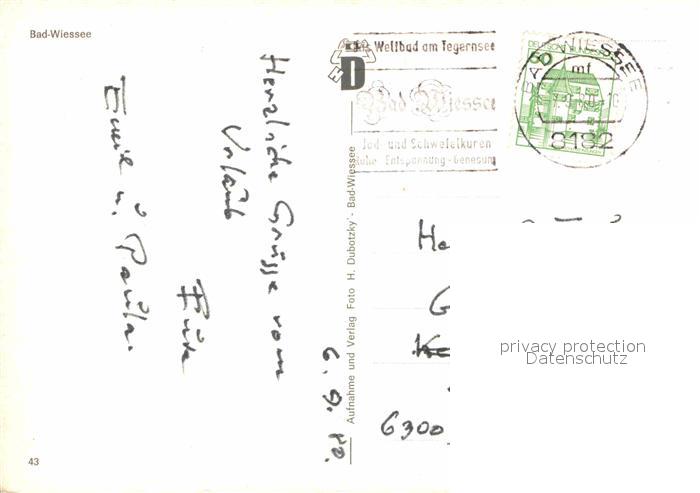 Bad-Wiessee
Das Weltbad am Tegernsee
Bad Wiessee
Jod- und Schwefelkuren
Ruhe-Entspannung-Genesung
D
DEUTSCHE
BAD WIESSEE
mf
8182
6. 9. 80.
Herzliche Grüsse vom
Urlaub
Eure
Emil u. Paula.
Aufnahme und Verlag Foto H. Dubotzky - Bad-Wiessee
He
G
6300
privacy protection
Datenschutz
43